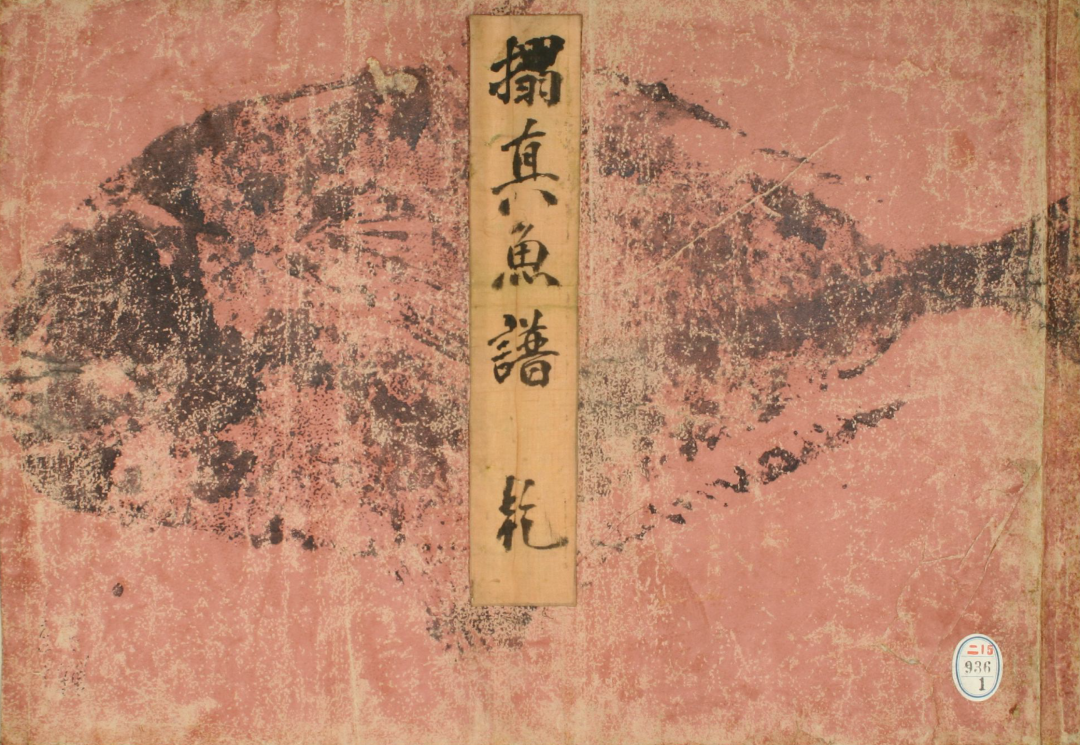 搨真魚譜 乾
二15
936
1